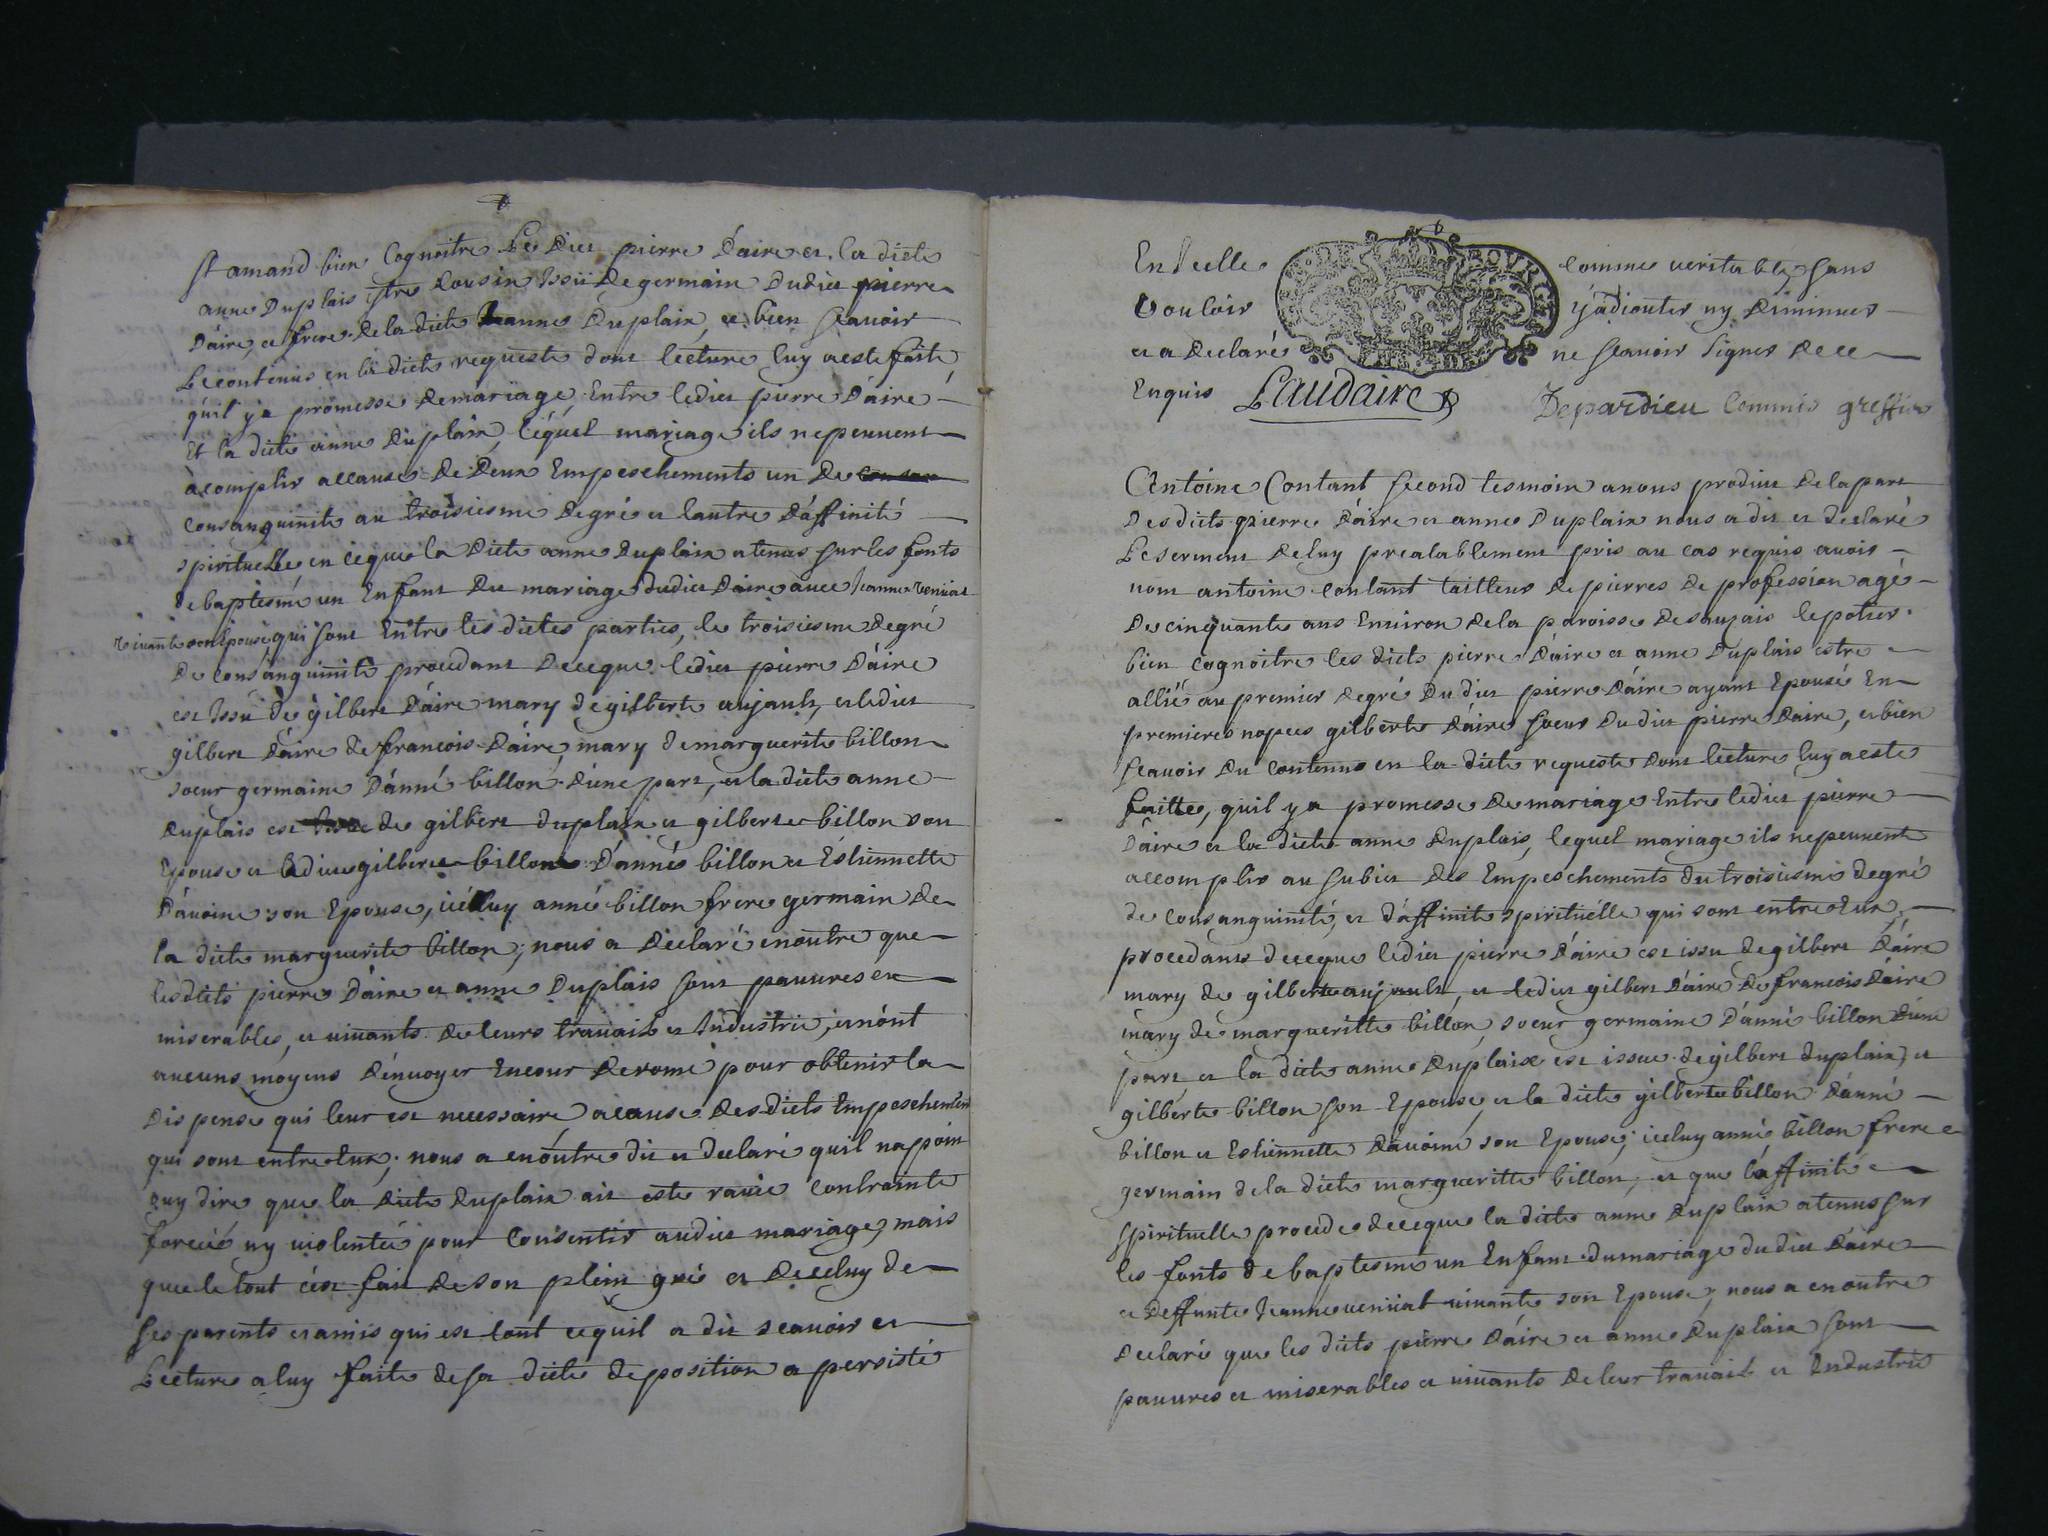 St amand bien Cognoitre Le Dict pierre Daire et la dicte
anne Duplais estre Cousin Issü De germain Dudict pierre
Daire, et frere De la dicte anne Duplaix, et bien scauoir
Le contenus en la dicte requeste dont lecture luy a este faite,
qu'il y a promesse De mariage Entre ledict pierre Daire
Et la dicte anne Duplaix, léquel mariage ils ne peuuent
acomplir a cause De Deux Empeschements un De
consanguinite au troisiesme Degré et lautre Dáffinité
spirituelle en ceque la Dicte anne Duplaix a tenus sur les fonts
de baptesme un Enfant Du mariage Dudict Daire auec Jeanne Veniat
viuante son Epouse, qui sont Entre les dictes parties, le troisiesme Degré
De consánguinite procedant De ceque ledict pierre Dáire
est Issu de gilbert Daire mary de gilberte aujault, et ledict
gilbert Daire de francois Daire, mary De marguerite billon
soeur germaine Dánné billon D'une part, et la dicte anne
Duplais est de gilbert duplaix et gilberte billon son
Epouse et la dicte gilberte billon Dánné billon et Estiennette
Dáuoine son Epouse, icéluy anné billon frere germain De
la dicte marguerite billon; nous a Declaré en outre que
lesdicts pierre Dáire et anne Duplais sont pauures et
miserables, et uiuants De leurs trauail et Industrie, et nónt
aucuns moyens Dénuoyer En cour De rome pour obtenir la
Dispense qui leur est necessaire a cause Desdicts Empeschements
qui sont entre Eux; nous a en óutre dit et declaré qu'il na point
ouy dire que la Dicte Duplaix ait este rauie contrainte
forcéé ny uiolentéé pour Consentir audict mariage, mais
que le tout c'est fait De son plein gré et De celuy de
ses parents et amis qui est tout ce quil a dit scauoir et
Lecture a luy faite de sa dicte deposition a persisté
En Icelle comme veritable sans
Vouloir y adiouter ny Diminuer
et a Declaré ne scauoir signer De ce
Enquis Laudaire Depardieu Commis greffier
Antoine Contant second tesmoin a nous produit De la part
Des dicts pierre Dáire et anne Duplaix nous a dit et declaré
Le serment De luy prealablement pris au cas requis auoir
nom antoine contant tailleur de pierres de profession agé
De cinquante ans Enuiron De la paroisse De sauzais le potier
bien cognoitre les dicts pierre Daire et anne Duplais estre
allié au premier degré Du dict pierre Dáire ayant Epousé En
premieres nopces gilberte Dáire soeur Du dict pierre Daire, et bien
scauoir Du contenus en la dicte requeste Dont lecture luy a este
faitte, quil y a promesse De mariage Entre ledict pierre
Dáire et la dicte anne Duplais, lequel mariage ils ne peuuent
accomplir au subict Des Empeschements du troisiesme degré
de consanguinité, et dáffinite spirituélle qui sont entre Eux,
procedants de ceque ledict pierre Dáire est issu de gilbert Dáire
mary de gilberte aujault, et ledict gilbert Dáire De francois Dáire
mary de margueritte billon, soeur germaine Dánné billon Dúne
part et la dicte anne Duplaix est issue de gilbert duplaix, et
gilberte billon son Epouse, et la dicte gilberte billon Dánné
billon et Estiennette Dáuoine son Epouse; icéluy anné billon frere
germain de la dicte margueritte billon; et que láffinité
spirituelle procede de ceque la dicte anne Duplaix a tenus sur
les fonts de baptesme un Enfant du mariage du dict Dáire
et Deffunte Jeanne ueniat uiuante son Epouse; nous a en outre
Declaré que les dicts pierre Dáire et anne Duplaix sont
pauures et miserables et uiuants De leur trauail et Industrie